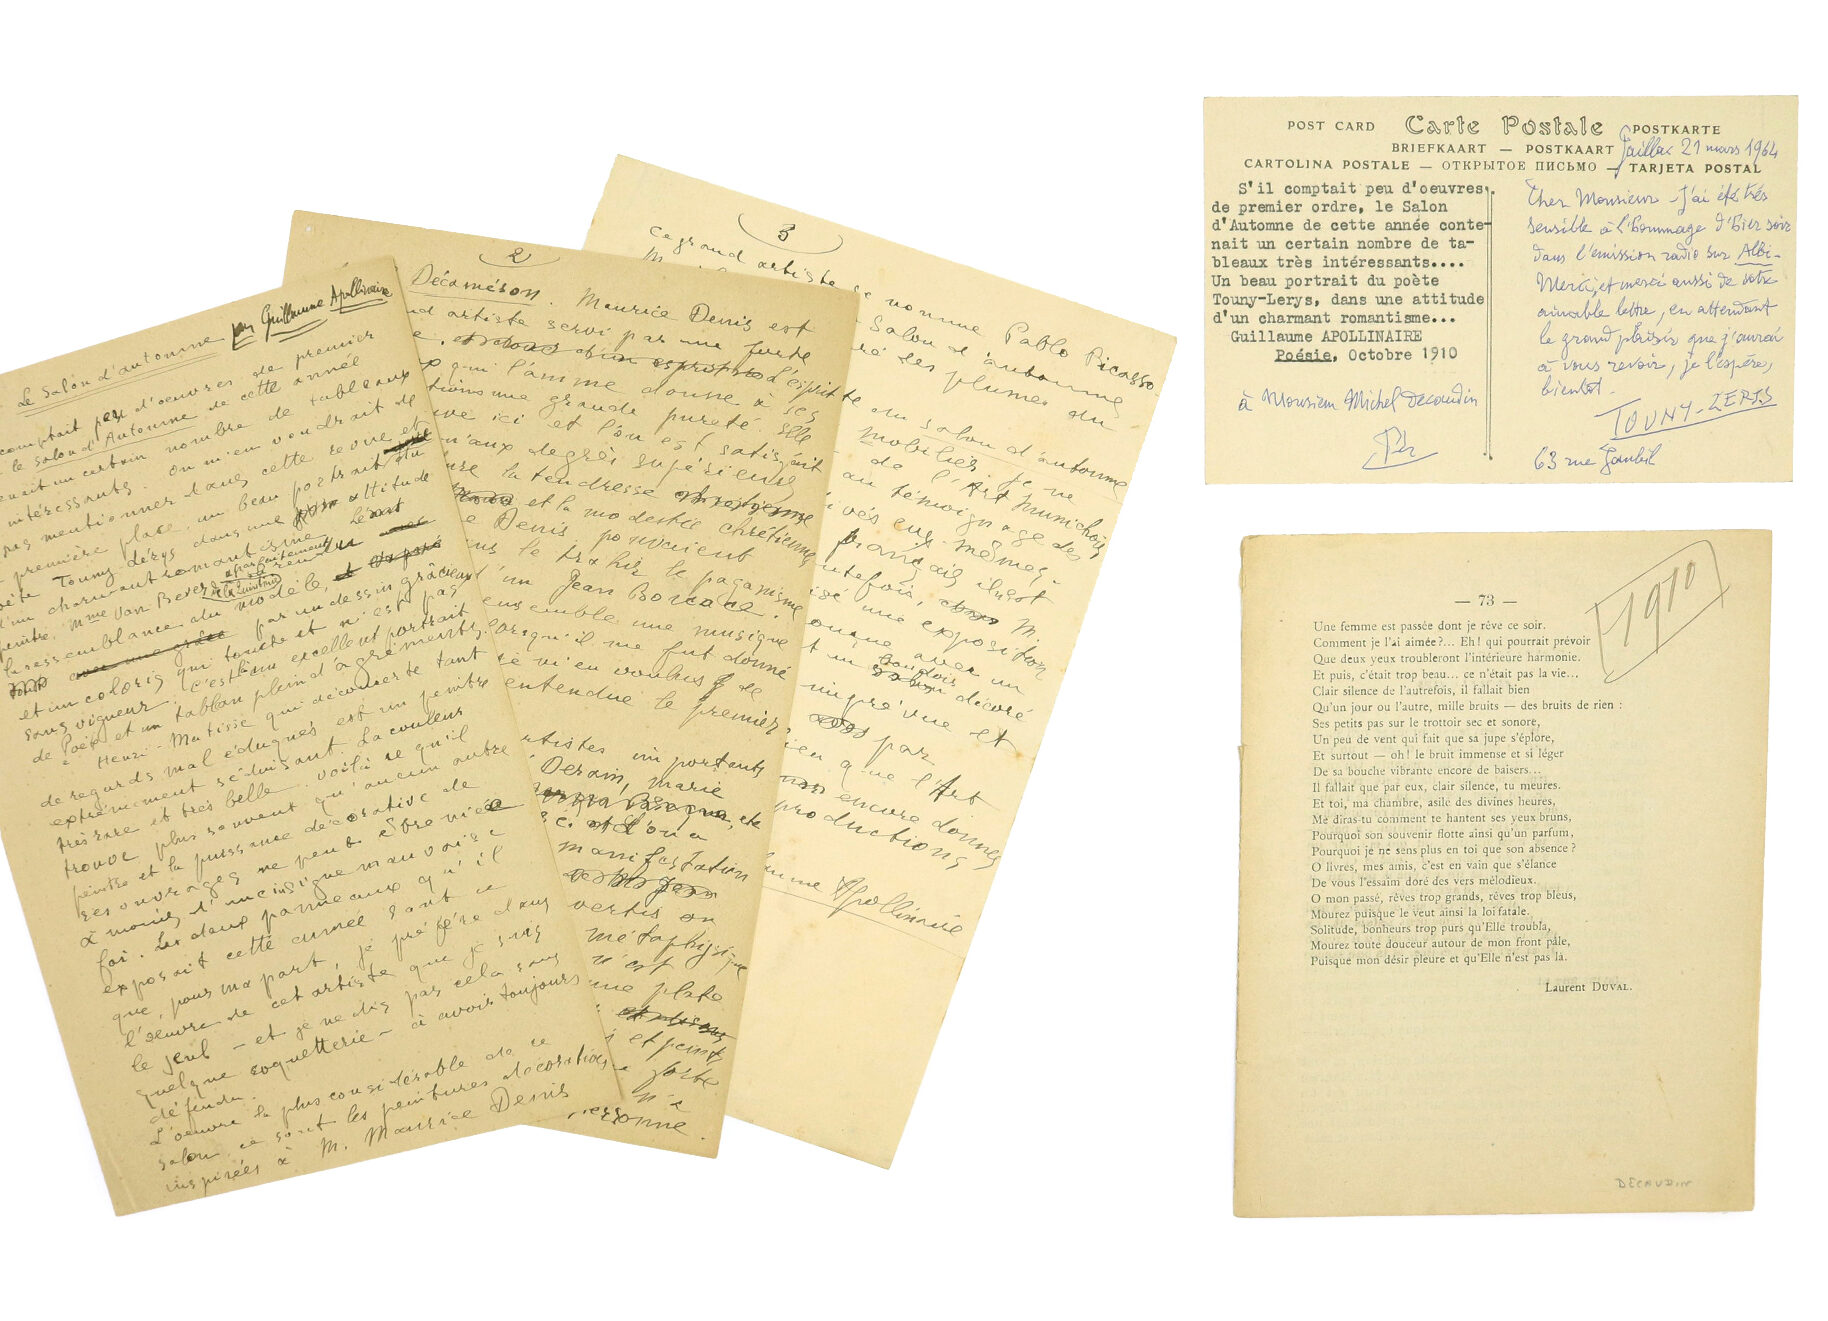 Le Salon d'automne par Guillaume Apollinaire
comptait peu d'oeuvres de premier
le Salon d'Automne de cette année
un certain nombre de tableaux
intéressants. On m'en voudrait de
pas mentionner dans cette revue et
première place un beau portrait du
Touny-Lérys dans une attitude
d'un charmant romantisme. Le
peintre, Mme Van Bever a parfaitement
rendu la
ressemblance du modèle,
par un dessin gracieux
et un coloris qui touche et n'est pas
sans vigueur. C'est un excellent portrait
de Poète et un tableau plein d'agréments.
Henri-Matisse qui déconcerte tant
de regards mal éduqués est un peintre
extrêmement séduisant. La couleur
très rare et très belle voilà ce qu'il
trouve plus souvent qu'aucun autre
peintre et la puissance décorative de
ses ouvrages ne peut être niée
à moins d'une insigne mauvaise
foi. Les deux panneaux qu'il
exposait cette année sont ce
que, pour ma part, je préfère dans
l'œuvre de cet artiste que je suis
le seul — et je ne dis pas cela sans
quelque coquetterie — à avoir toujours
défendu.
L'oeuvre la plus considérable de ce
salon ce sont les peintures décoratives
inspirées à M. Maurice Denis
2
Décaméron. Maurice Denis est
artiste servi par une forte
L'esprit
qui l'anime donne à ses
une grande pureté. Elle
ici et l'on est satisfait
qu'aux degrés supérieurs
la tendresse
et la modestie chrétienne
Denis pouvaient
le trahir le paganisme
d'un Jean Boccace.
ensemble une musique
lorsqu'il me fut donné
m'en voulus de
entendue le premier
artistes importants
Derain, Marie
et l'on a
manifestation
vertis on
métaphysique
n'est
une plate
et peint
forte
n'a
personne.
3
Ce grand artiste se nomme Pablo Picasso.
Salon d'automne
des plumes du
du salon d'automne
mobilier je ne
de l'Art Munichois
au témoignage des
eux-mêmes.
français il n'ont
M.
une exposition
avec un
décoré
imprévue et
par
bien que l'Art
encore donner
productions
Apollinaire
POST CARD Carte Postale POSTKARTE
BRIEFKAART — POSTKAART
CARTOLINA POSTALE — ОТКРЫТОЕ ПИСЬМО — TARJETA POSTAL
Gaillac 21 mars 1964
S'il comptait peu d'oeuvres
de premier ordre, le Salon
d'Automne de cette année conte-
nait un certain nombre de ta-
bleaux très intéressants....
Un beau portrait du poète
Touny-Lerys, dans une attitude
d'un charmant romantisme...
Guillaume APOLLINAIRE
Poésie, Octobre 1910
à Monsieur Michel Decaudin
Cher Monsieur - J'ai été très
sensible à l'hommage d'hier soir
dans l'émission radio sur Albi-
Merci, et merci aussi de votre
aimable lettre, en attendant
le grand plaisir que j'aurai
à vous revoir, je l'espère,
bientot.
TOUNY-LERYS
63 rue
— 73 —
1910
Une femme est passée dont je rêve ce soir.
Comment je l'ai aimée?... Eh! qui pourrait prévoir
Que deux yeux troubleront l'intérieure harmonie.
Et puis, c'était trop beau... ce n'était pas la vie...
Clair silence de l'autrefois, il fallait bien
Qu'un jour ou l'autre, mille bruits — des bruits de rien :
Ses petits pas sur le trottoir sec et sonore,
Un peu de vent qui fait que sa jupe s'éplore,
Et surtout — oh! le bruit immense et si léger
De sa bouche vibrante encore de baisers...
Il fallait que par eux, clair silence, tu meures.
Et toi, ma chambre, asile des divines heures,
Me diras-tu comment te hantent ses yeux bruns,
Pourquoi son souvenir flotte ainsi qu'un parfum,
Pourquoi je ne sens plus en toi que son absence?
O livres, mes amis, c'est en vain que s'élance
De vous l'essaim doré des vers mélodieux.
O mon passé, rêves trop grands, rêves trop bleus,
Mourez puisque le veut ainsi la loi fatale.
Solitude, bonheurs trop purs qu'Elle troubla,
Mourez toute douceur autour de mon front pâle,
Puisque mon désir pleure et qu'Elle n'est pas là.
Laurent DUVAL.
DECAUDIN